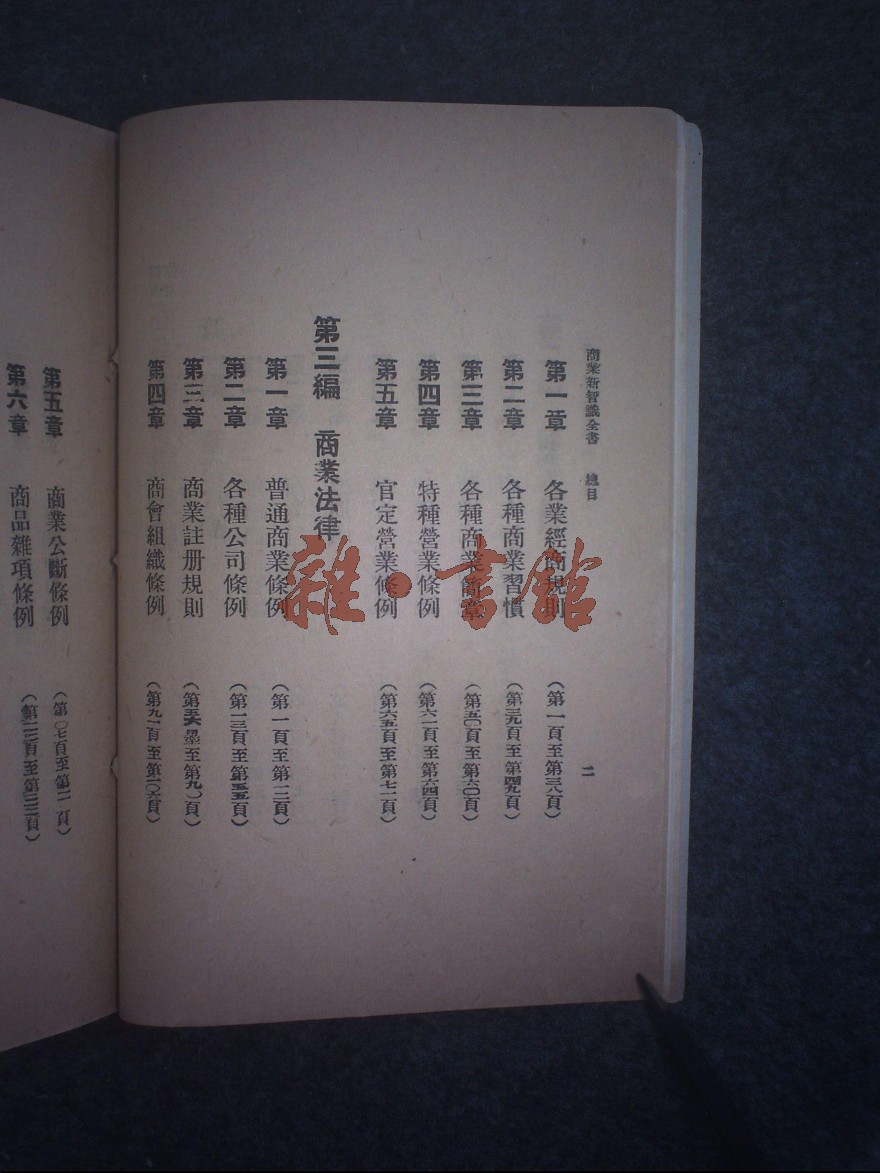 商業新智識全書　總目
二
第一章　各業經商規則　（第一頁至第三八頁）
第二章　各種商業習慣　（第三九頁至第四九頁）
第三章　各種商業商章　（第五〇頁至第六〇頁）
第四章　特種營業條例　（第六一頁至第六四頁）
第五章　官定營業條例　（第六五頁至第七一頁）
第三編　商業法律
第一章　普通商業條例　（第一頁至第一二頁）
第二章　各種公司條例　（第一三頁至第五五頁）
第三章　商業註册規則　（第五六頁至第九〇頁）
第四章　商會組織條例　（第九一頁至第一〇六頁）
第五章　商業公斷條例
第六章　商品雜項條例
雜·書館